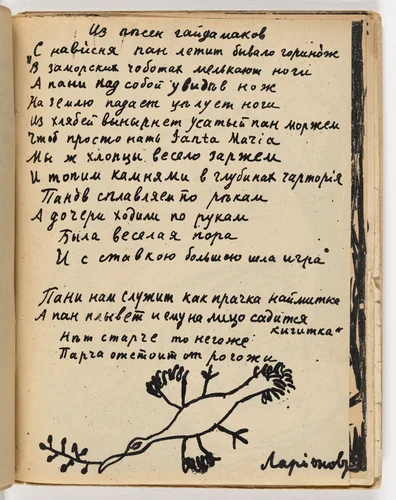 Из пѣсен гайдамаков
"С нависня пан летит бывало горинож
В заморских чоботах мелькают ноги
А пани над собой увидѣв нож
На землю падает цѣлует ноги
Из хлябей вынырнет усатый пан моржем
Чтоб простонать Santa Maria
Мы ж хлопцы весело заржем
И топим камнями в глубинах чарторiя
Панов сплавляем по рѣкам
А дочери ходили по рукам
Была веселая пора
И с ставкою большою шла игра"
Пани нам служит как прачка наймитка
А пан плывет и ему на лицо садится
кигитка"
Нѣт старче то негоже
Парча отстоит от рогожи
Ларiонов